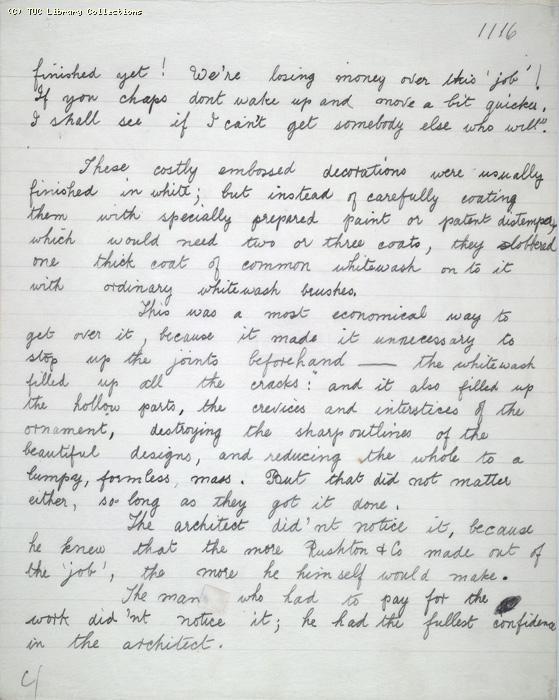 (C) TUC Library Collections
1116
finished yet! We're losing money over this 'job'!
If you chaps dont wake up and move a bit quicker,
I shall see if I can't get somebody else who will".
These costly embossed decorations were usually
finished in white; but instead of carefully coating
them with specially prepared paint or patent distemper,
which would need two or three coats, they slobbered
one thick coat of common whitewash on to it
with ordinary whitewash brushes.
This was a most economical way to
get over it, because it made it unnecessary to
stop up the joints beforehand — the whitewash
filled up all the cracks: and it also filled up
the hollow parts, the crevices and interstices of the
ornament, destroying the sharp outlines of the
beautiful designs, and reducing the whole to a
lumpy, formless, mass. But that did not matter
either, so long as they got it done.
The architect did'nt notice it, because
he knew that the more Rushton & Co made out of
the 'job', the more he himself would make.
The man who had to pay for the
work did'nt notice it; he had the fullest confidence
in the architect.